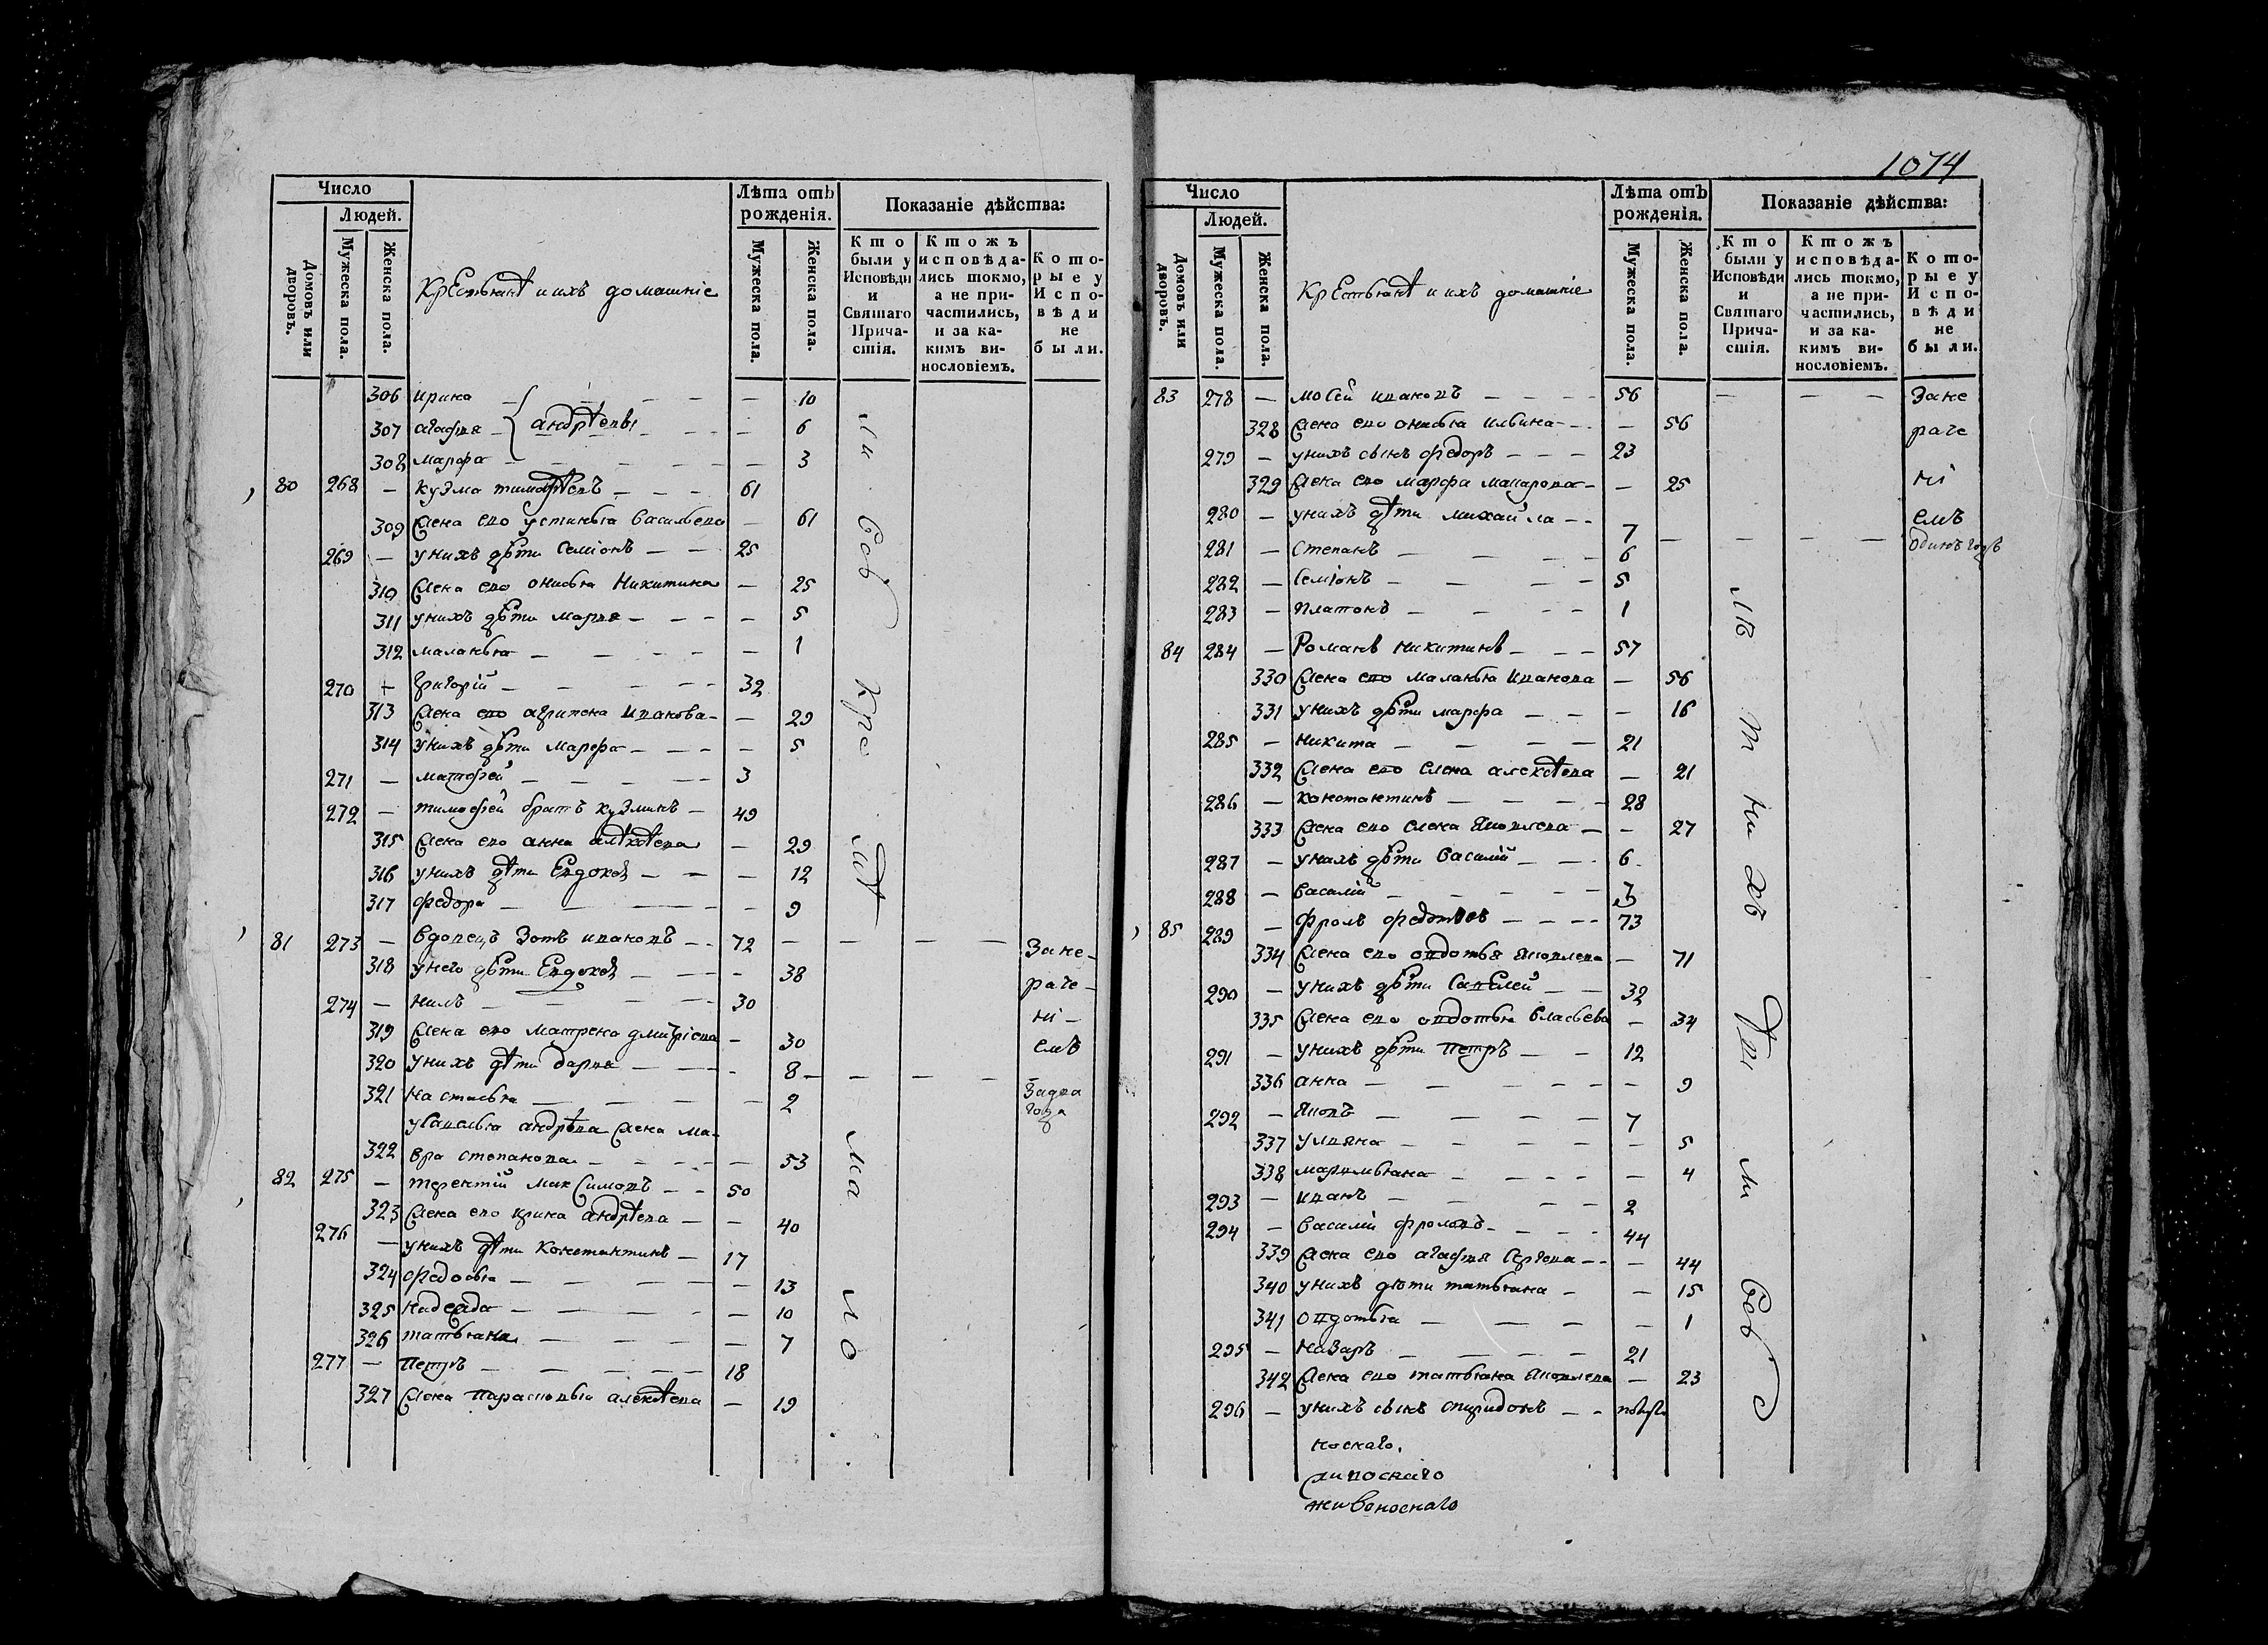 1074
Число
Людей.
Домовъ или дворовъ.
Мужеска пола.
Женска пола.
Крестьянѣ и ихъ домашніе
Лѣта отъ рожденія.
Мужеска пола.
Женска пола.
Показаніе дѣйства:
Кто были у Исповѣди и Святаго Причастія.
Ктожъ исповѣдались токмо, а не причастились, и за какимъ винословіемъ.
Которые у Исповѣди не были.
306 ирина — 10
307 агафия андрѣевы — 6
308 марфа — 3
80 268 — кузма тимофѣевъ — 61
309 жена его устинья васильева — 61
269 — у нихъ дѣти семіонъ — 25
310 жена его онисья никитина — 25
311 у нихъ дѣти марья — 5
312 маланья — 1
270 — григорій — 32
313 жена его агрипена иванова — 29
314 у нихъ дѣти марфа — 5
271 — матфей — 3
272 — тимофей братъ кузминъ — 49
315 жена его анна алѣксѣева — 29
316 у нихъ дѣти — 12
317 федора — 9
81 273 — вдовецъ зотъ ивановъ — 72 — — — за не
318 у него дѣти — 38 раче
274 — нилъ — 30 ні
319 жена его матрена дмитріева — 30 емъ
320 у нихъ дѣти дарья — 8 — — —
321 настасья — 2 за два года
андрѣева жена ма
322 вра степанова — 53
82 275 — терентій максимовъ — 50
323 жена его ирина андрѣева — 40
276 — у нихъ дѣти константинъ — 17
324 федосья — 13
325 надежда — 10
326 татьяна — 7
277 — петръ — 18
327 жена парасковья алексѣева — 19
Число
Людей.
Домовъ или дворовъ.
Мужеска пола.
Женска пола.
Крестьянѣ и ихъ домашніе
Лѣта отъ рожденія.
Мужеска пола.
Женска пола.
Показаніе дѣйства:
Кто были у Исповѣди и Святаго Причастія.
Ктожъ исповѣдались токмо, а не причастились, и за какимъ винословіемъ.
Которые у Исповѣди не были.
83 278 — мосей ивановъ — 56 — — — за не
328 жена его онисья ильина — 56 раче
279 — у нихъ сынъ федоръ — 23
329 жена его марфа макарова — 25 ні
280 — у нихъ дѣти михайла — 7 емъ
281 — степанъ — 6 — — — одинъ годъ
282 — семіонъ — 5
283 — платонъ — 1
84 284 — романъ никитинъ — 57
330 жена его маланья иванова — 56
331 у нихъ дѣти марфа — 16
285 — никита — 21
332 жена его елена алексѣева — 21
286 — константинъ — 28
333 жена его елена яковлева — 27
287 — у нихъ дѣти василій — 6
288 — василій — 3
85 289 — фролъ — 73
334 жена его овдотья яковлева — 71
290 — у нихъ дѣти савелей — 32
335 жена его овдотья власьева — 34
291 — у нихъ дѣти петръ — 12
336 анна — 9
292 — яковъ — 7
337 ульяна — 5
338 маримьяна — 4
293 — иванъ — 2
294 — василій фроловъ — 44
339 жена его агафия сергеева — 44
340 у нихъ дѣти татьяна — 15
341 овдотья — 1
295 — назаръ — 21
342 жена его татьяна яковлева — 23
296 — у нихъ сынъ спиридонъ — полгода